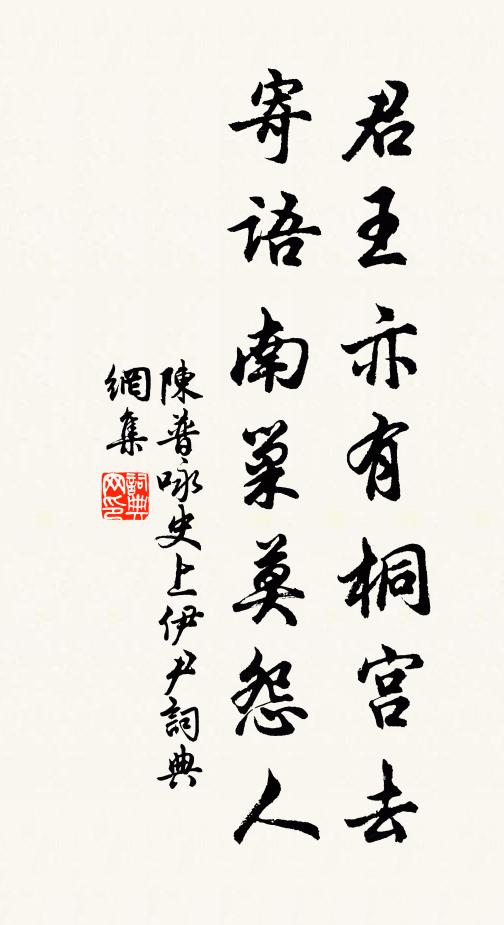 君王亦有桐宫去
寄语南巢莫怨人
陳普咏史上伊尹詞典
網集
詞典
网印